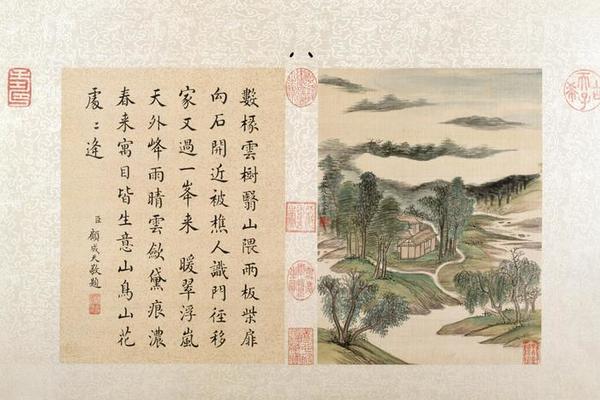 數椽雲樹翳山隈兩板柴扉
向石開近被樵人識門徑移
家又過一峯來 暖翠浮嵐
天外峰雨晴雲歛黛痕濃
春來寓目皆生意山鳥山花
處〻逢
臣顧成天敬題